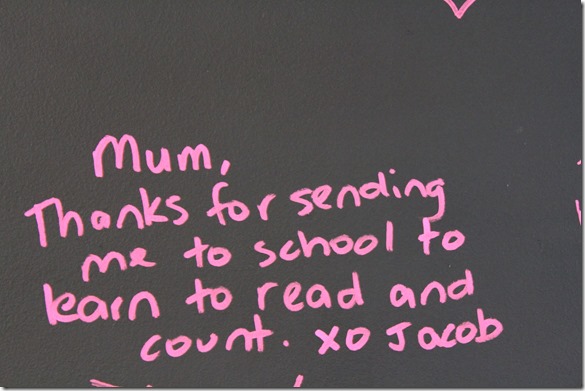 Mum,
Thanks for sending
me to school to
learn to read and
count. xo Jacob